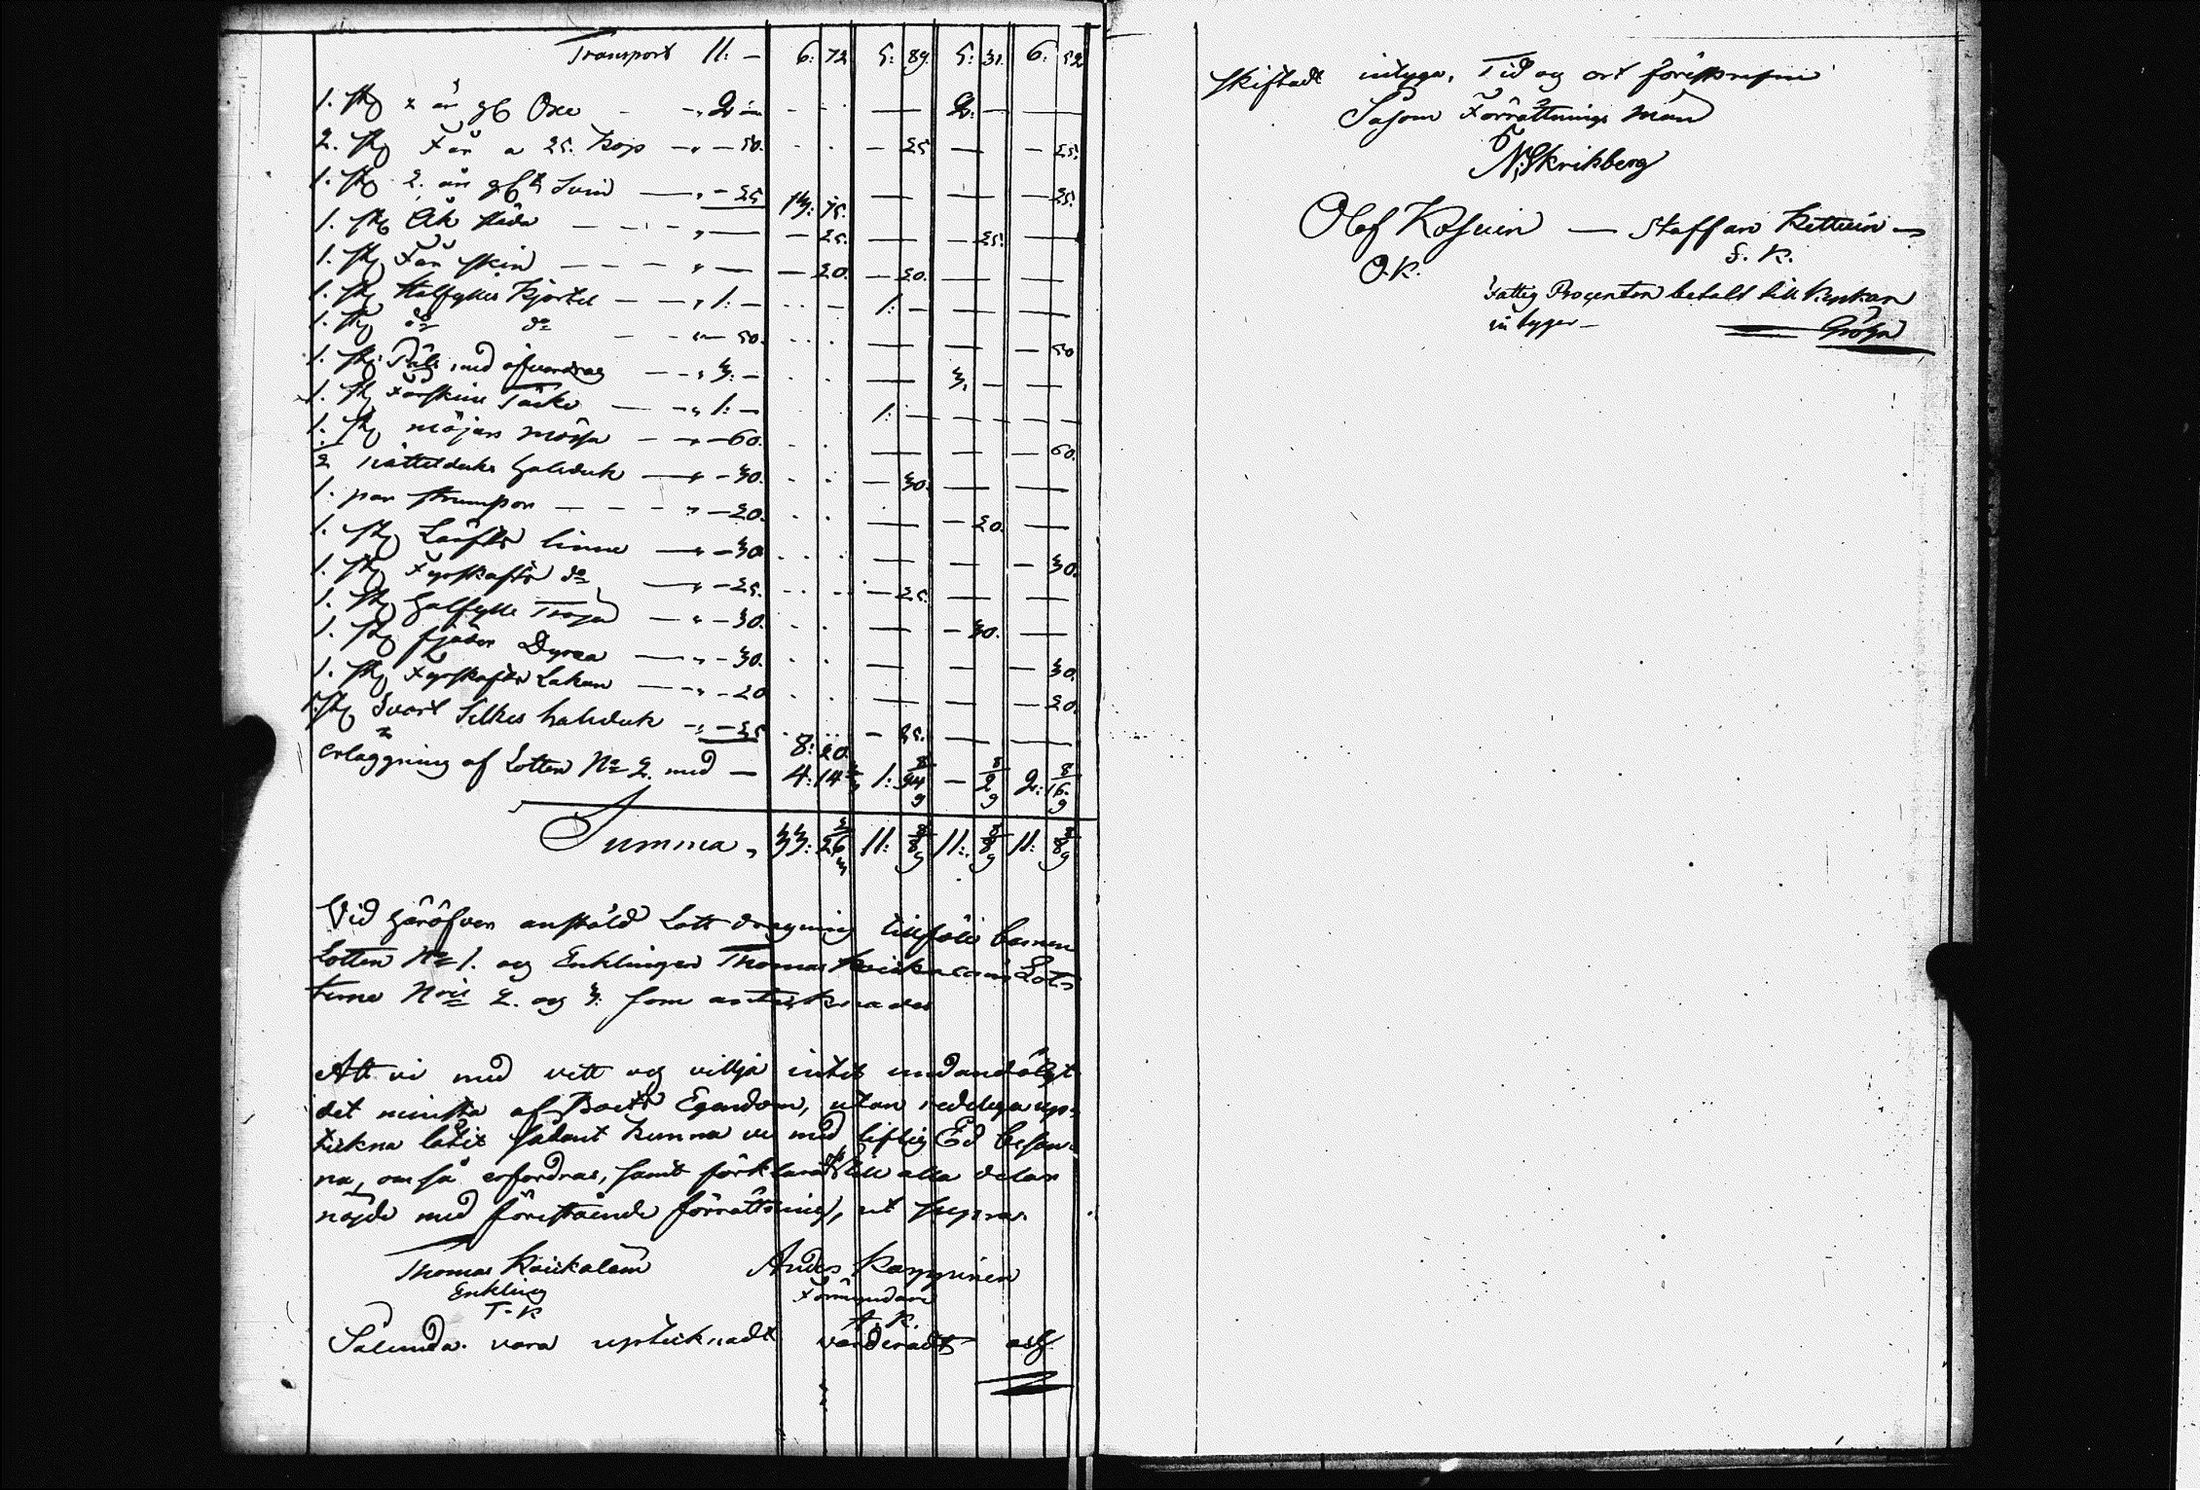 Transport 11: — 6: 72 5: 89. 5: 31. 6: 52
1. st. år gl Oxe — „ 2: — — 2: — —
2. st. Får a 25. kop — „ — 50. — 25 — — 25.
1. st. 2. år gl. Svin — „ — 25 13: 75. — — — 25.
1. st. Åk släde — — „ — — 25. — — 25. —
1. st. Får skin — — — „ — — 20. — 20. — —
1. st. Halfylles Kjortel — — „ 1: — 1: — — —
1. st. do do — — „ — 50. — — — 50
1. st. Päls med öfverdrag — — „ 3: — — 3. — —
1. st. Fårskins Täcke — — „ 1: — 1: — — —
1. st. möjars mössa — — „ — 60. — — — 60.
2 nättelduks halsduk — „ — 30. — 30. — —
1. par strumpor — — — „ — 20. — — 20. —
1. st. Lärfts linne — „ — 30 — — — 30.
1. st. Fyrskafts do — „ — 25. — 25. — —
1. st. halfylle Tröja — „ — 30. — — 30. —
1. st. fjäder Dyna — „ — 30. — — — 30.
1. st. Fyrskafts Lakan — „ — 20 — — — 20.
1. st. Svart Silkes halsduk — „ — 25 8: 20. — 25. — —
erläggning af Lotten No 2. med — 4: 14 2/3 1: 94 8/9 — 2 8/9 2: 16 8/9
Summa, 33: 26 2/3 11: 8 8/9 11: 8 8/9 11: 8 8/9
Vid häröfver anstäld Lott dragning tillföll barnen
Lotten No 1. og Enklingen Thomas Lot-
terne Nris 2. og 3. som antecknades
Att vi med vett og vilja intet undandölgt
det minsta af Boets Egendom, utan redeliga up-
tekna låtit sådant kunna vi med liflig Ed besan-
na, om så erfordras, samt förklarat till alla delar
nöjde med föreståënde förrättning, ut supra.
Thomas Anders Karppinen
Enkling Förmyndare
T. K A. K.
Sålunda vara uptecknadt värderadt och
skiftadt intyga, Tid og ort föreskrefne
Såsom Förrättnings män
N. Skrikberg
Olof — Staffan
O. K. S. K.
Fattig Procenten betalt till Kyrkan
intyger —